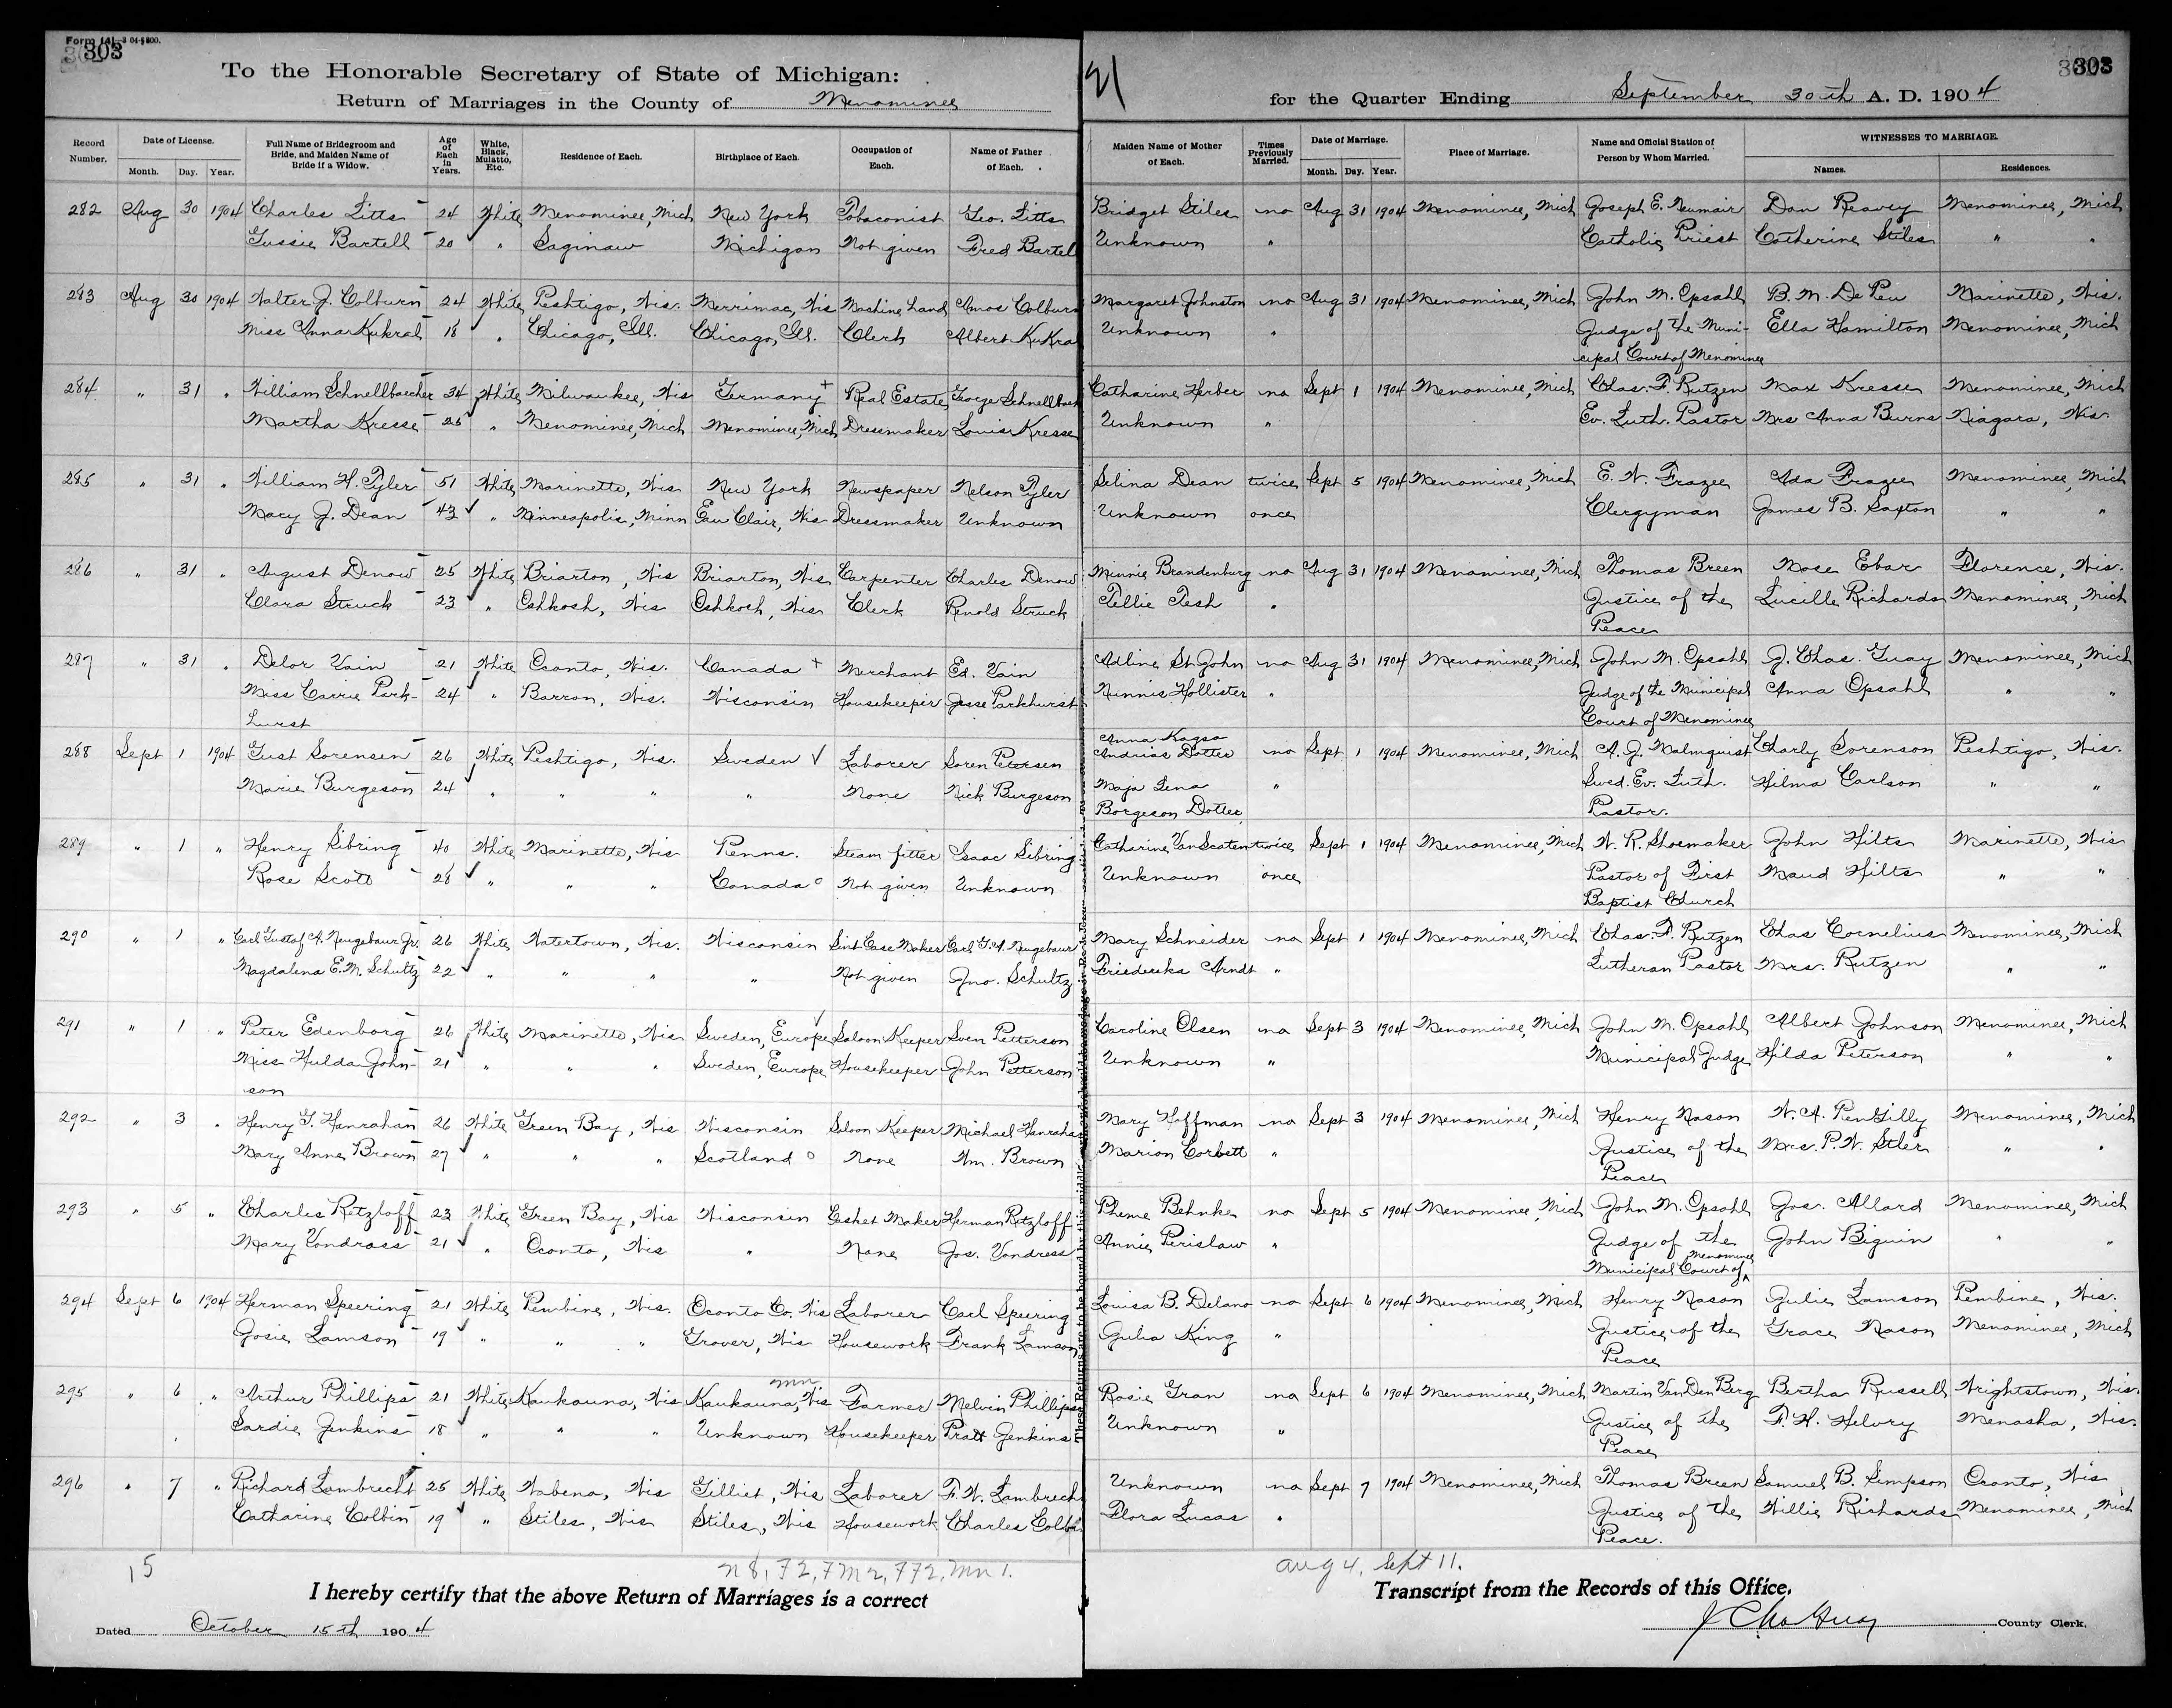 Form (A)—3 04-1 800.
303
To the Honorable Secretary of State of Michigan:
Return of Marriages in the County of Menominee
21
for the Quarter Ending September 30th A. D. 1904
303
Record Number. Date of License. Month. Day. Year. Full Name of Bridegroom and Bride, and Maiden Name of Bride if a Widow. Age of Each in Years. White, Black, Mulatto, Etc. Residence of Each. Birthplace of Each. Occupation of Each. Name of Father of Each. Maiden Name of Mother of Each. Times Previously Married. Date of Marriage. Month. Day. Year. Place of Marriage. Name and Official Station of Person by Whom Married. WITNESSES TO MARRIAGE. Names. Residences.
282 Aug 30 1904 Charles Litts 24 White Menominee, Mich New York Tobaconist Geo. Litts Bridget Stiles no Aug 31 1904 Menominee, Mich Joseph E. Neumair Dan Reavey Menominee, Mich
Gussie Bartell 20 " Saginaw Michigan Not given Fred Bartell Unknown " Catholic Priest Catherine Stiles " "
283 Aug 30 1904 Walter J. Colburn 24 White Peshtigo, Wis. Merrimac, Wis Machine Hand Amos Colburn Margaret Johnston no Aug 31 1904 Menominee, Mich John M. Opsahl B. M. De Peu Marinette, Wis.
Miss Anna Kukral 18 " Chicago, Ill. Chicago, Ill. Clerk Albert Kukral Unknown " Judge of the Muni- Ella Hamilton Menominee, Mich
cipal Court of Menominee
284 " 31 " William Schnellbaecher 34 White Milwaukee, Wis Germany + Real Estate George Schnellbaech Catharine Herber no Sept 1 1904 Menominee, Mich Chas. F. Rutzen Max Kresse Menominee, Mich
Martha Kresse 25 " Menominee, Mich Menominee, Mich Dressmaker Louis Kresse Unknown " Ev. Luth. Pastor Mrs Anna Burns Niagara, Wis
285 " 31 " William H. Tyler 51 White Marinette, Wis New York Newspaper Nelson Tyler Selina Dean twice Sept 5 1904 Menominee, Mich E. W. Frazee Ada Frazee Menominee, Mich
Macy J. Dean 43 " Minneapolis, Minn Eau Clair, Wis Dressmaker Unknown Unknown once Clergyman James B. Saxton " "
286 " 31 " August Denow 25 White Briarton, Wis Briarton, Wis Carpenter Charles Denow Minnie Brandenburg no Aug 31 1904 Menominee, Mich Thomas Breen Mose Ebar Florence, Wis.
Clara Struck 23 " Oshkosh, Wis Oshkosh, Wis Clerk Renold Struck Tellie Tesh " Justice of the Lucille Richards Menominee, Mich
Peace
287 " 31 " Delor Vain 21 White Oconto, Wis. Canada + Merchant Ed. Vain Adline St John no Aug 31 1904 Menominee, Mich John M. Opsahl J. Chas. Guay Menominee, Mich
Miss Carrie Park- 24 " Barron, Wis. Wisconsin Housekeeper Jesse Parkhurst Ninnis Hollister " Judge of the Municipal Anna Opsahl " "
hurst Court of Menominee
288 Sept 1 1904 Gust Sorensen 26 White Peshtigo, Wis. Sweden √ Laborer Soren Petersen Anna Kagsa Andrias Dotter no Sept 1 1904 Menominee, Mich A. J. Malmquist Charly Sorenson Peshtigo, Wis.
Marie Burgeson 24 " " " " None Nick Burgeson Maja Lena " Swed. Ev. Luth. Hilma Carlson " "
Borgeson Dotter Pastor.
289 " 1 " Henry Sibring 40 White Marinette, Wis Penns. Steam fitter Isaac Sibring Catharine Van Scaten twice Sept 1 1904 Menominee, Mich W. R. Shoemaker John Hilts Marinette, Wis
Rose Scott 28 " " " Canada ° Not given Unknown Unknown once Pastor of First Maud Hilts " "
Baptist Church
290 " 1 " Carl Gustaf A. Neugebaur Jr. 26 White Watertown, Wis. Wisconsin Case Maker Carl G. A. Neugebaur Mary Schneider no Sept 1 1904 Menominee, Mich Chas. F. Rutzen Chas Cornelius Menominee, Mich
Magdalena E. M. Schultz 22 " " " " Not given Jno. Schultz Friedericka Arndt " Lutheran Pastor Mrs. Rutzen " "
291 " 1 " Peter Edenborg 26 White Marinette, Wis Sweden, Europe Saloon Keeper Sven Petterson Caroline Olsen no Sept 3 1904 Menominee, Mich John M. Opsahl Albert Johnson Menominee, Mich
Miss Hulda John- 21 " " " Sweden, Europe Housekeeper John Petterson Unknown " Municipal Judge Hilda Peterson " "
son
292 " 3 " Henry G. Hanrahan 26 White Green Bay, Wis Wisconsin Saloon Keeper Michael Hanrahan Mary Hoffman no Sept 3 1904 Menominee, Mich Henry Nason W. A. PenGilly Menominee, Mich
Mary Anne Brown 27 " " " Scotland ° None Wm. Brown Marion Corbett " Justice of the Mrs. P. W. Stler " "
Peace
293 " 5 " Charles Retzloff 23 White Green Bay, Wis Wisconsin Casket Maker Herman Retzloff Pheme Behnke no Sept 5 1904 Menominee, Mich John M. Opsahl Jos. Allard Menominee, Mich
Mary Vondrass 21 " Oconto, Wis " None Jos. Vondress Annie Perislaw " Judge of the John Biguin " "
Municipal Court of Menominee
294 Sept 6 1904 Herman Speering 21 White Pembine, Wis. Oconto Co. Wis Laborer Carl Speering Louisa B. Delano no Sept 6 1904 Menominee, Mich Henry Nason Julie Lamson Pembine, Wis.
Josie Lamson 19 " " " Grover, Wis Housework Frank Lamson Julia King " Justice of the Grace Nason Menominee, Mich
Peace
295 " 6 " Arthur Phillips 21 White Kaukauna, Wis Kaukauna, Wis Farmer Melvin Phillips Rosie Gran no Sept 6 1904 Menominee, Mich Martin Van Den Berg Bertha Russell Wrightstown, Wis.
Sardie Jenkins 18 " " " Unknown Housekeeper Pratt Jenkins Unknown " Justice of the F. H. Helvry Menasha, Wis.
Peace
296 " 7 " Richard Lambrecht 25 White Wabeno, Wis Gillett, Wis Laborer F. W. Lambrech Unknown no Sept 7 1904 Menominee, Mich Thomas Breen Samuel B. Simpson Oconto, Wis
Catharine Colbin 19 " Stiles, Wis Stiles, Wis Housework Charles Colbin Flora Lucas " Justice of the Willie Richards Menominee, Mich
Peace.
15
Aug 4, Sept 11.
I hereby certify that the above Return of Marriages is a correct Transcript from the Records of this Office.
Dated October 15th 1904 J Chas Guay County Clerk.